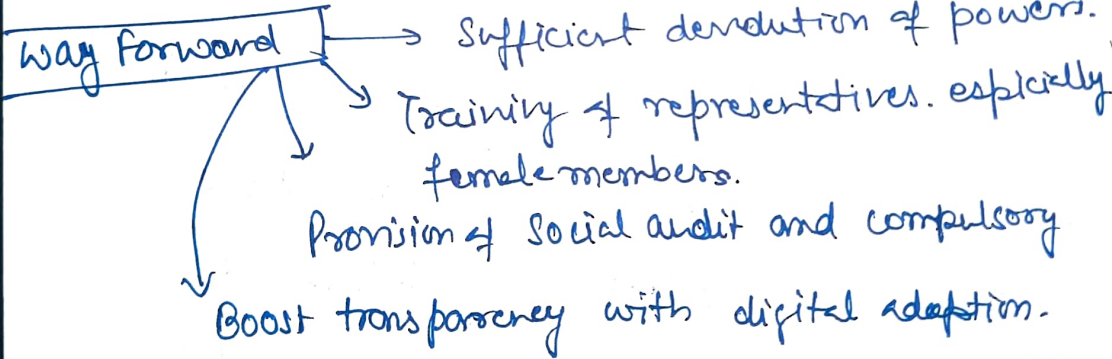 Way Forward
Sufficient devolution of powers.
Training of representatives. espicially
female members.
Provision of Social audit and compulsory
Boost transparency with digital adaption.